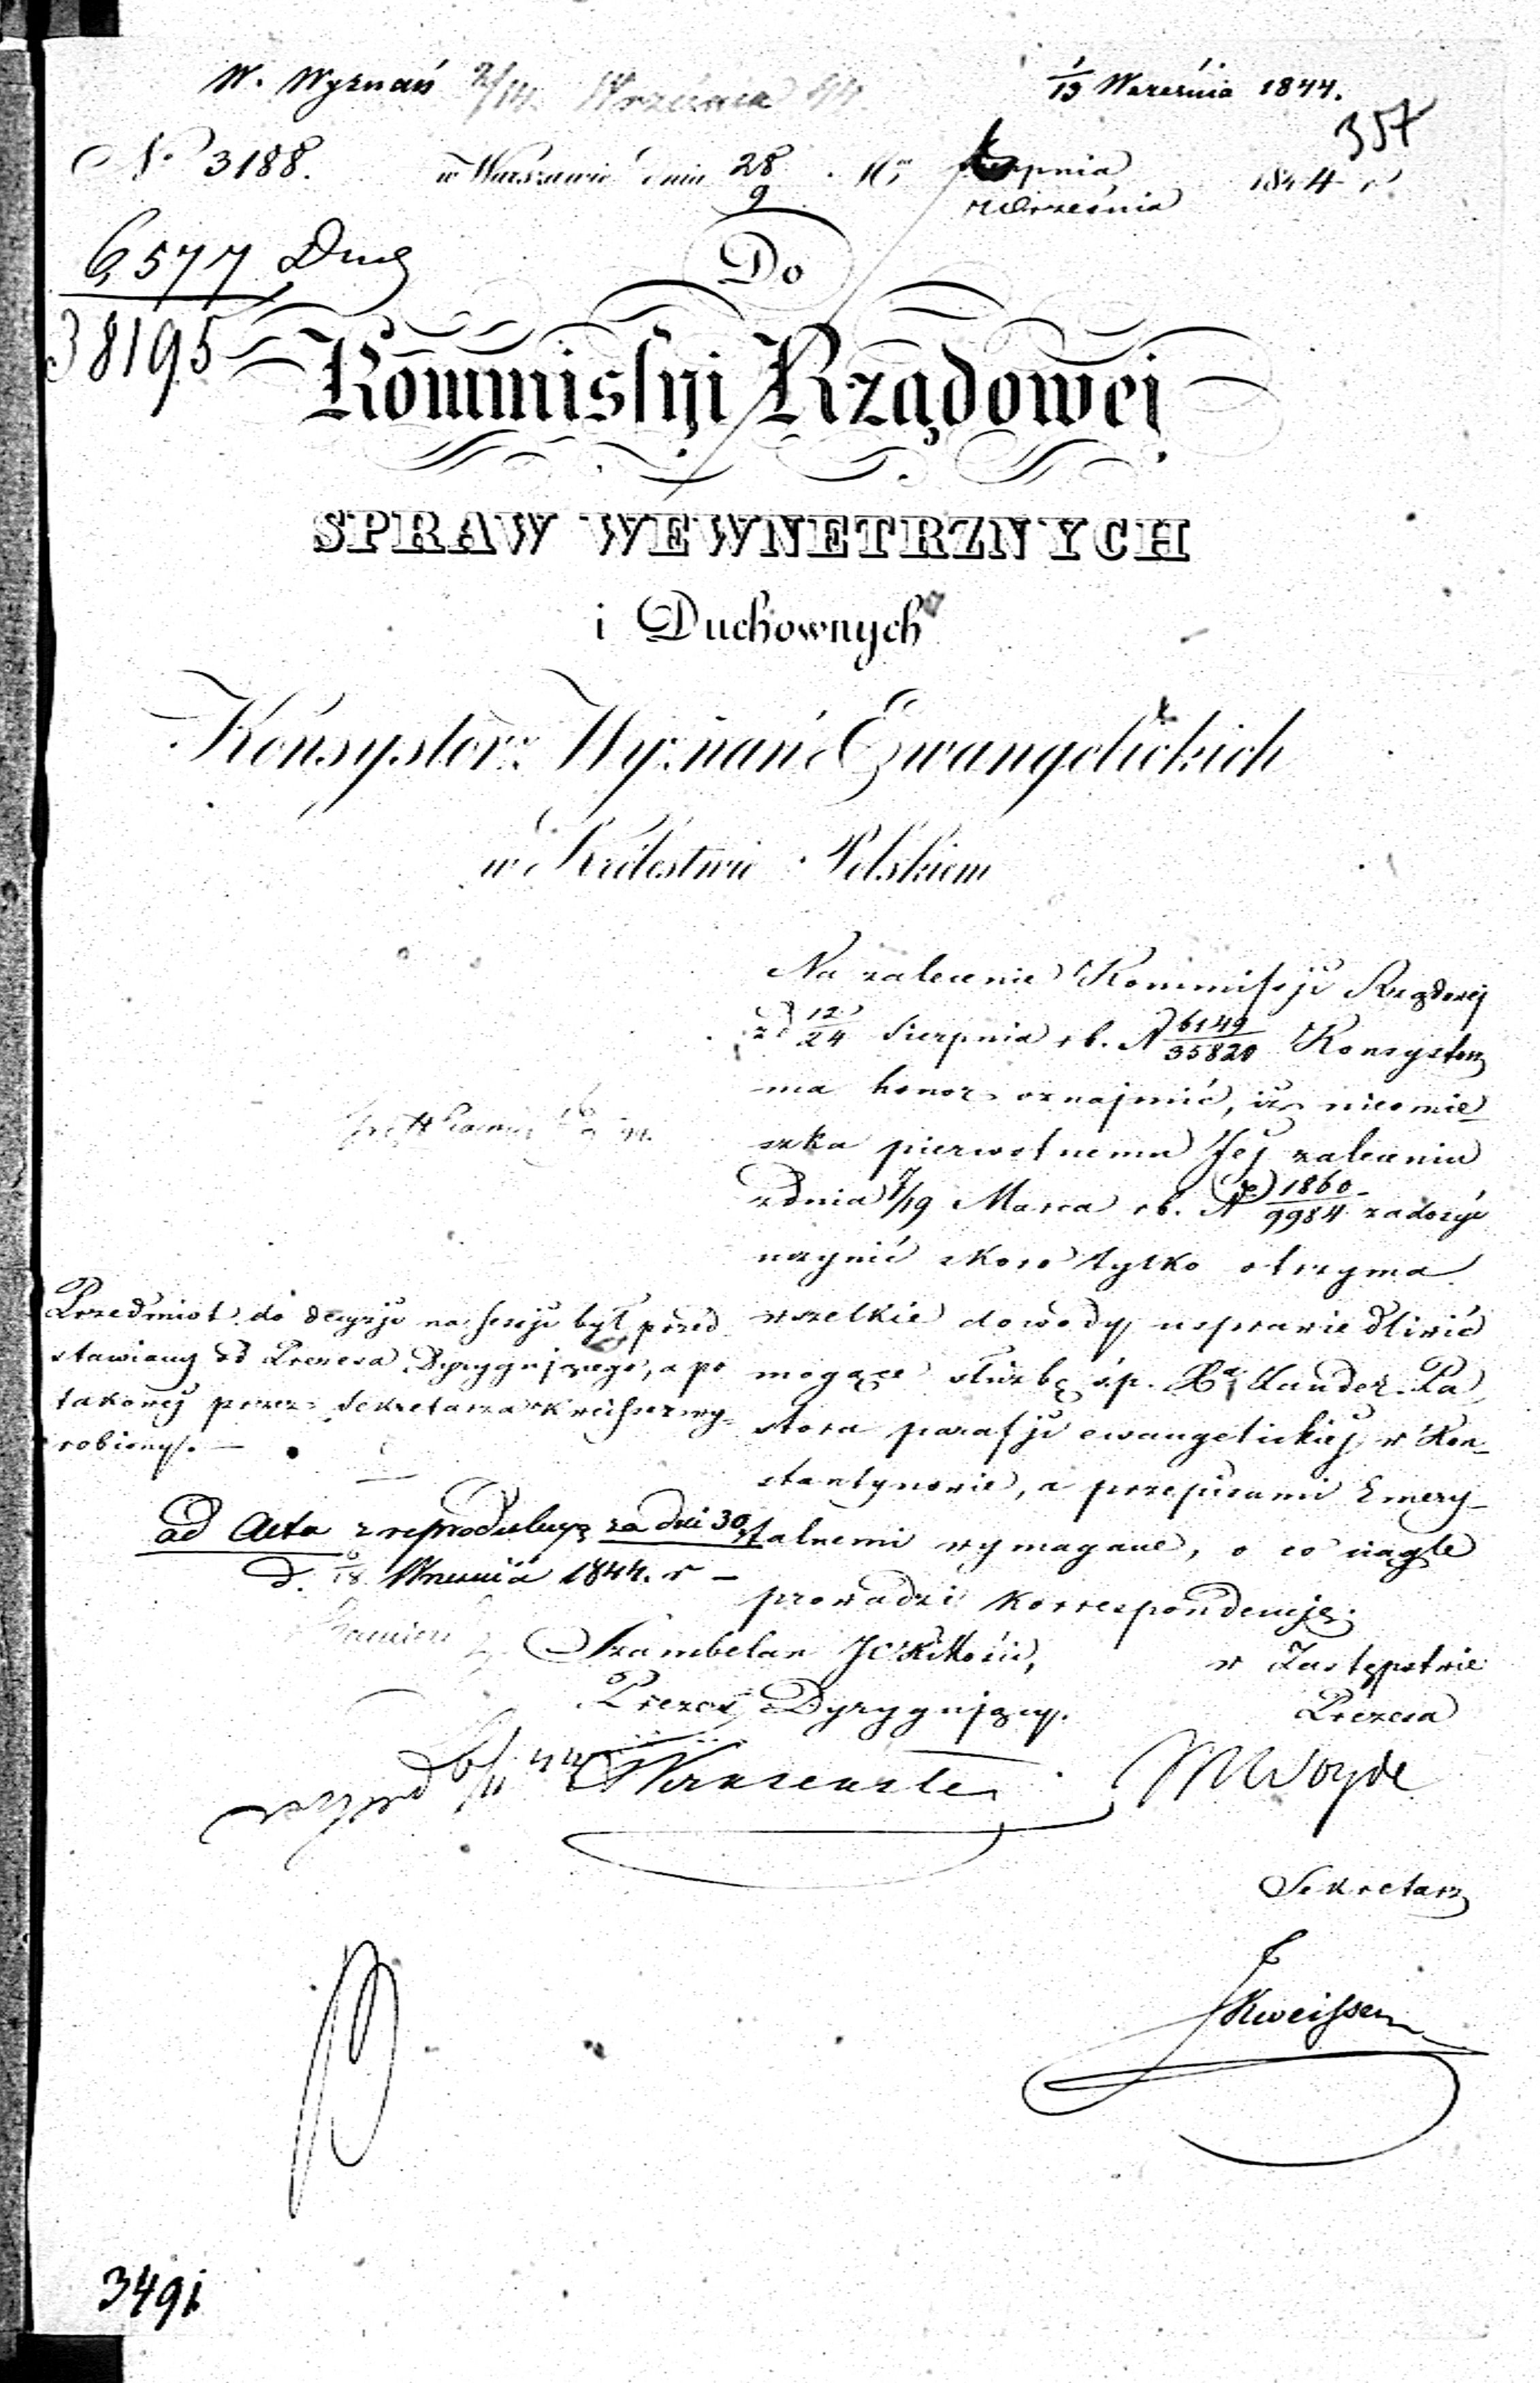 W. Wyznań 2/14 Września 844
1/13 Września 1844.
357
No 3188. w Warszawie dnia 28/9 Mca Sierpnia/Września 1844 r.
6577 Duch
38195
Do
Kommissyi Rządowej
SPRAW WEWNETRZNYCH
i Duchownych
Konsystorz Wyznań Ewangelickich
w Królestwie Polskiem
Na zalecenie Kommissyi Rządowej
zd 12/24 Sierpnia r b. N 6149/35820 Konsystorz
ma honor oznajmić, iż nieomie-
szka pierwotnemu Jej zaleceniu
zdnia 7/19 Marca r b. N 1860/9984 zadosyć
uczynić skoro tylko otrzyma
wszelkie dowody usprawiedliwić
mogące służbę ś. p. Xa Kauder Pa-
stora parafji ewangelickiej w Kon-
stantynowie, a przepisami Emery-
talnemi wymagane, o co ciągle
prowadzi korrespondencję.
Przedmiot do decyzji na sessji był przed-
stawiany od Prezesa Dyrygującego, a po
takowej przez Sekretarza Kweisser wy-
robiony. —
ad Acta z reprodukcyą za dni 30
d. 6/18 Września 1844. r —
Szambelan JCKMości,
Prezes Dyrygujący.
w Zastępstwie
Prezesa
Woyde
Sekretarz
Kweisser
3491